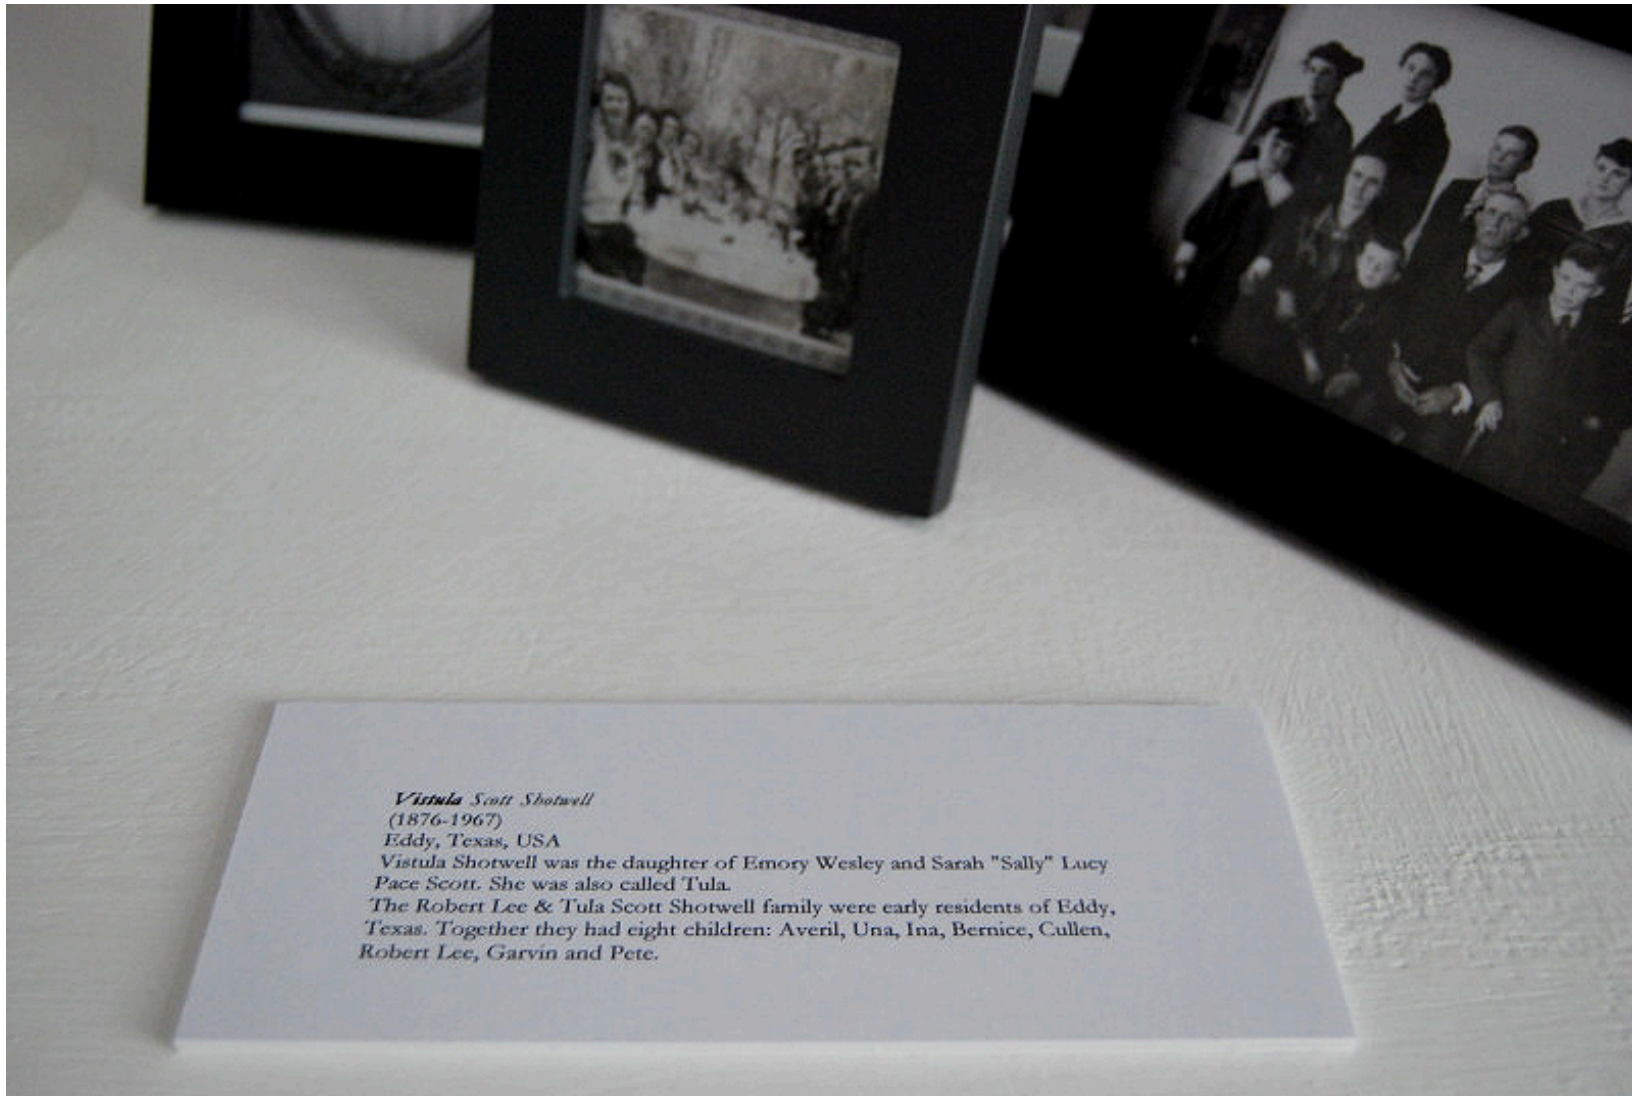 Vistula Scott Shotwell
(1876-1967)
Eddy, Texas, USA
Vistula Shotwell was the daughter of Emory Wesley and Sarah "Sally" Lucy
Pace Scott. She was also called Tula.
The Robert Lee & Tula Scott Shotwell family were early residents of Eddy,
Texas. Together they had eight children: Averil, Una, Ina, Bernice, Cullen,
Robert Lee, Garvin and Pete.